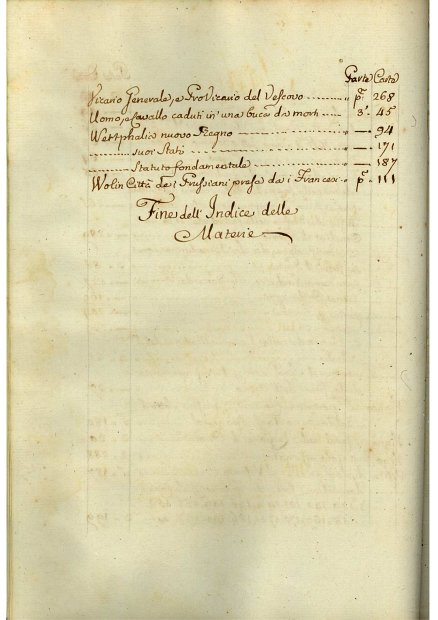 Parte Carte
Vicario Generale, e ProVicario del Vescovo ........ " pª. 268
Uomo, e Cavallo caduti in' una buca da morti ...... " 3ª. 45
Westphalia nuovo Regno ———— " — 94
............ suoi Stati ———— " — 171
............ Statuto fondamentale ———— " — 187
Wolin Città de i Prussiani presa da i Francesi . " pª. 111
Fine dell' Indice delle
Materie